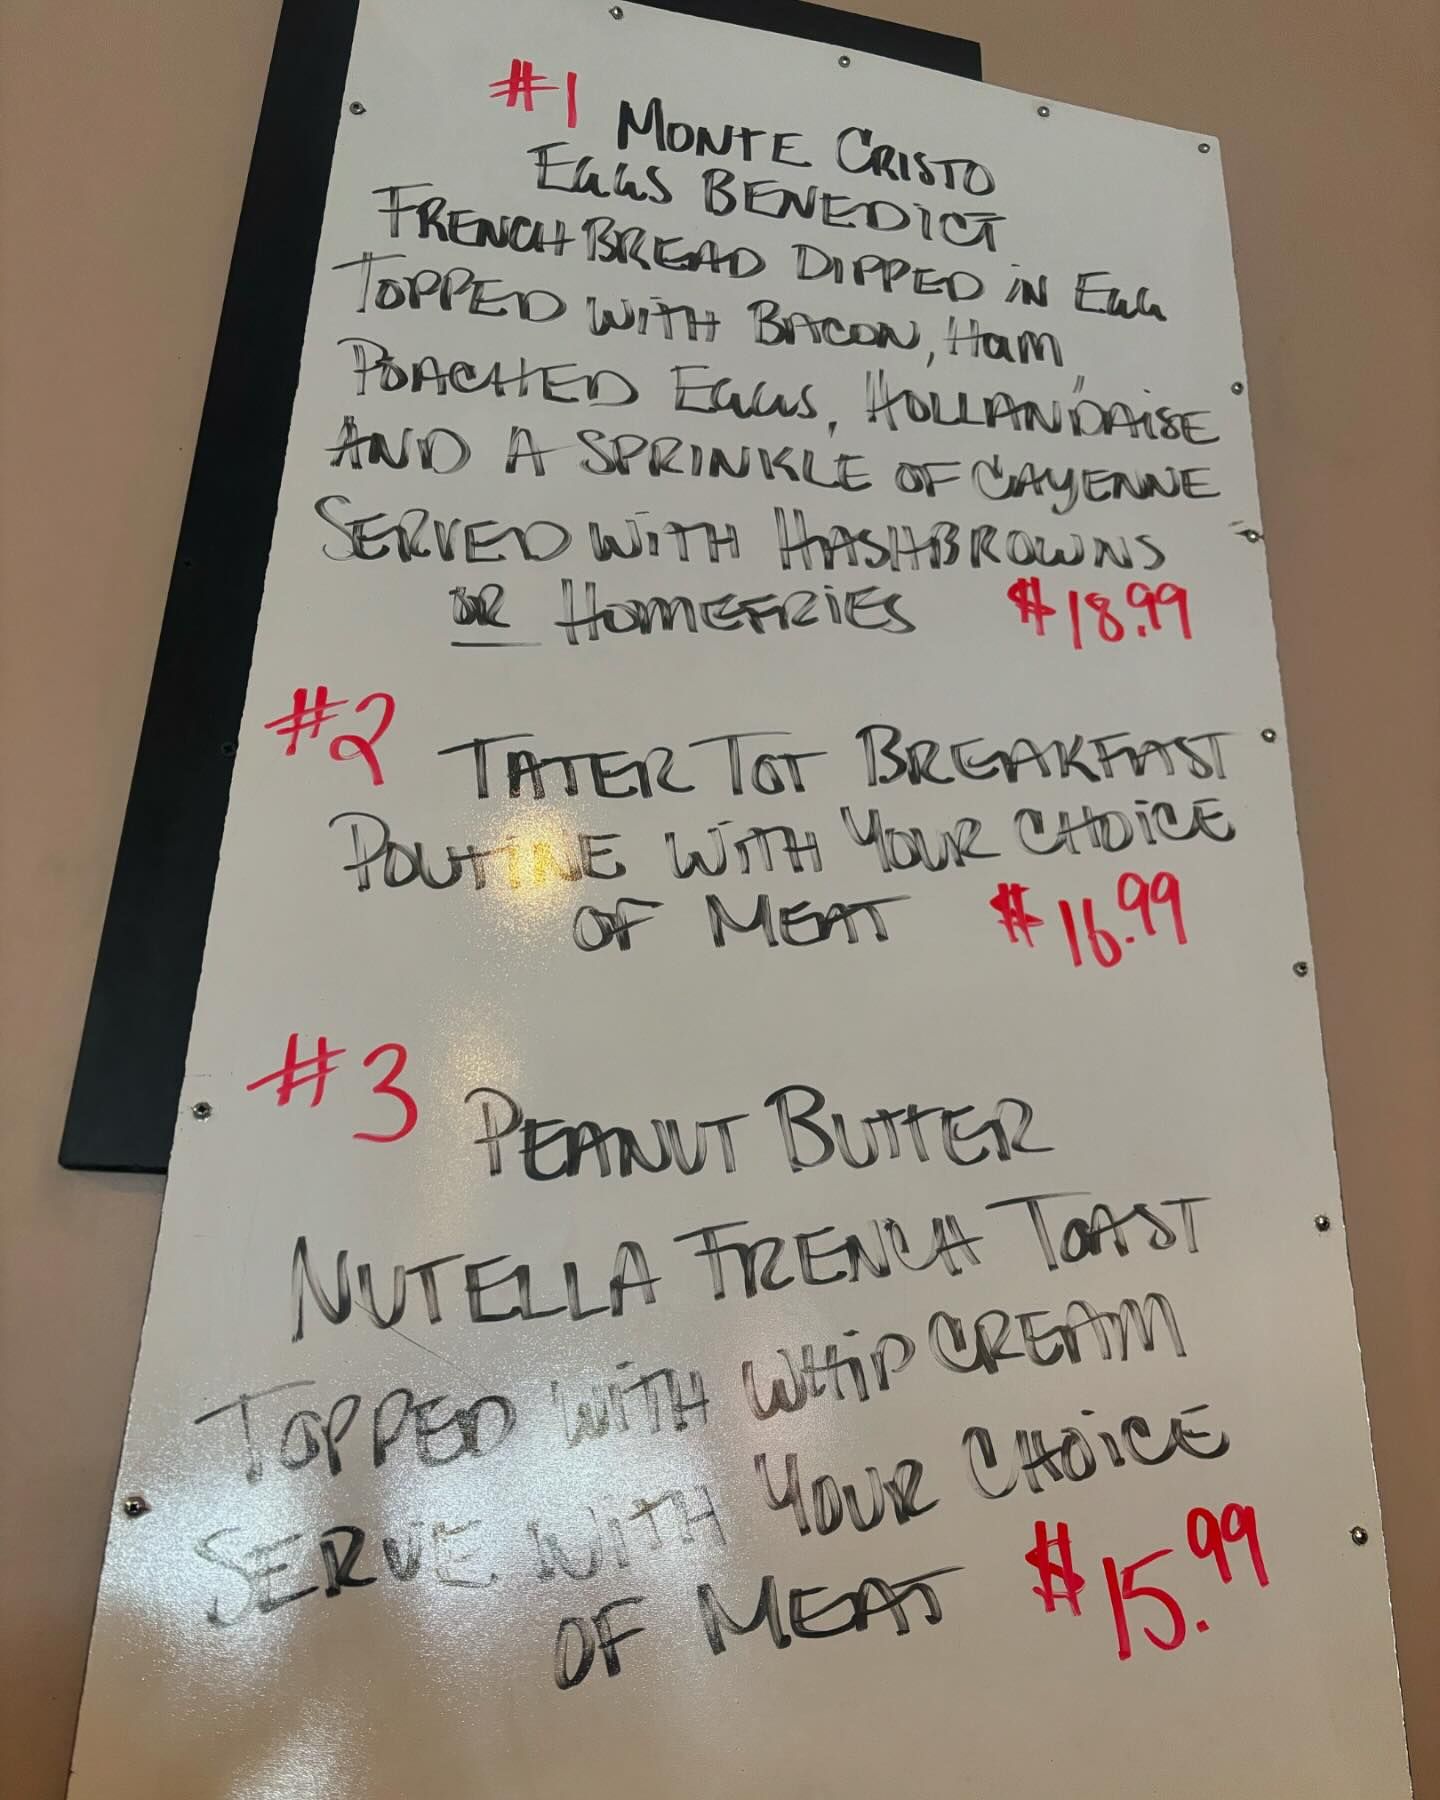 #1 MONTE CRISTO
EGGS BENEDICT
FRENCH BREAD DIPPED IN EGG
TOPPED WITH BACON, HAM,
POACHED EGGS, HOLLANDAISE
AND A SPRINKLE OF CAYENNE
SERVED WITH HASHBROWNS
OR HOMEFRIES $18.99
#2 TATER TOT BREAKFAST
POUTINE WITH YOUR CHOICE
OF MEAT $16.99
#3 PEANUT BUTTER
NUTELLA FRENCH TOAST
TOPPED WITH WHIP CREAM
SERVE WITH YOUR CHOICE
OF MEAT $15.99